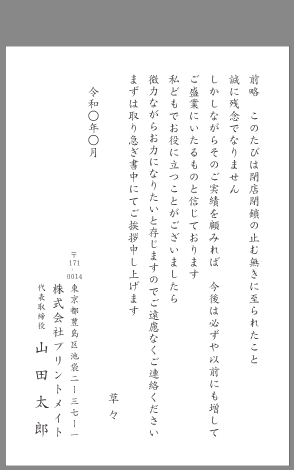 前略　このたびは閉店閉鎖の止む無きに至られたこと
誠に残念でなりません
しかしながらそのご実績を顧みれば　今後は必ずや以前にも増して
ご盛業にいたるものと信じております
私どもでお役に立つことがございましたら
微力ながらお力になりたいと存じますのでご遠慮なくご連絡ください
まずは取り急ぎ書中にてご挨拶申し上げます
草々
令和〇年〇月
〒171-0014
東京都豊島区池袋二ー三七ー一
株式会社プリントメイト
代表取締役　山田太郎